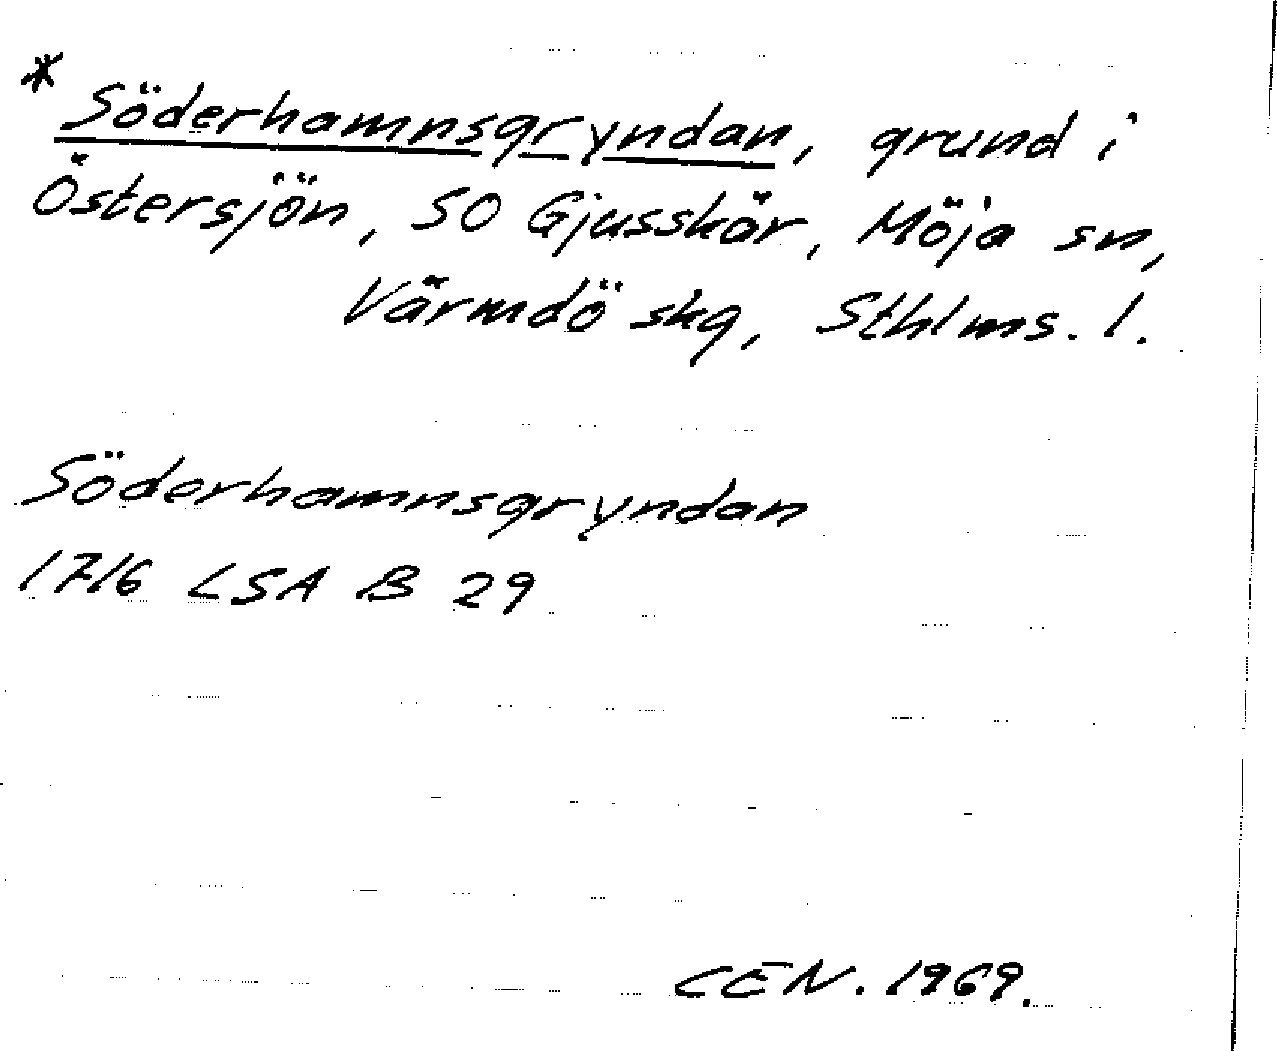 * Söderhamnsgryndan, grund i
Östersjön, SO Gjusskär, Möja sn,
Värmdö skg, Sthlms. l.
Söderhamnsgryndan
1716 LSA B 29
CEN. 1969.